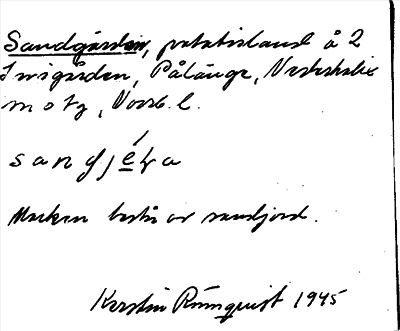 Sandgärden, potatisland å 2
Irisgården, Pålänge, Nederkalix
 , Norrb. l.
sandjęͅra
Marken består av sandjord.
Kerstin Rönnquist 1945